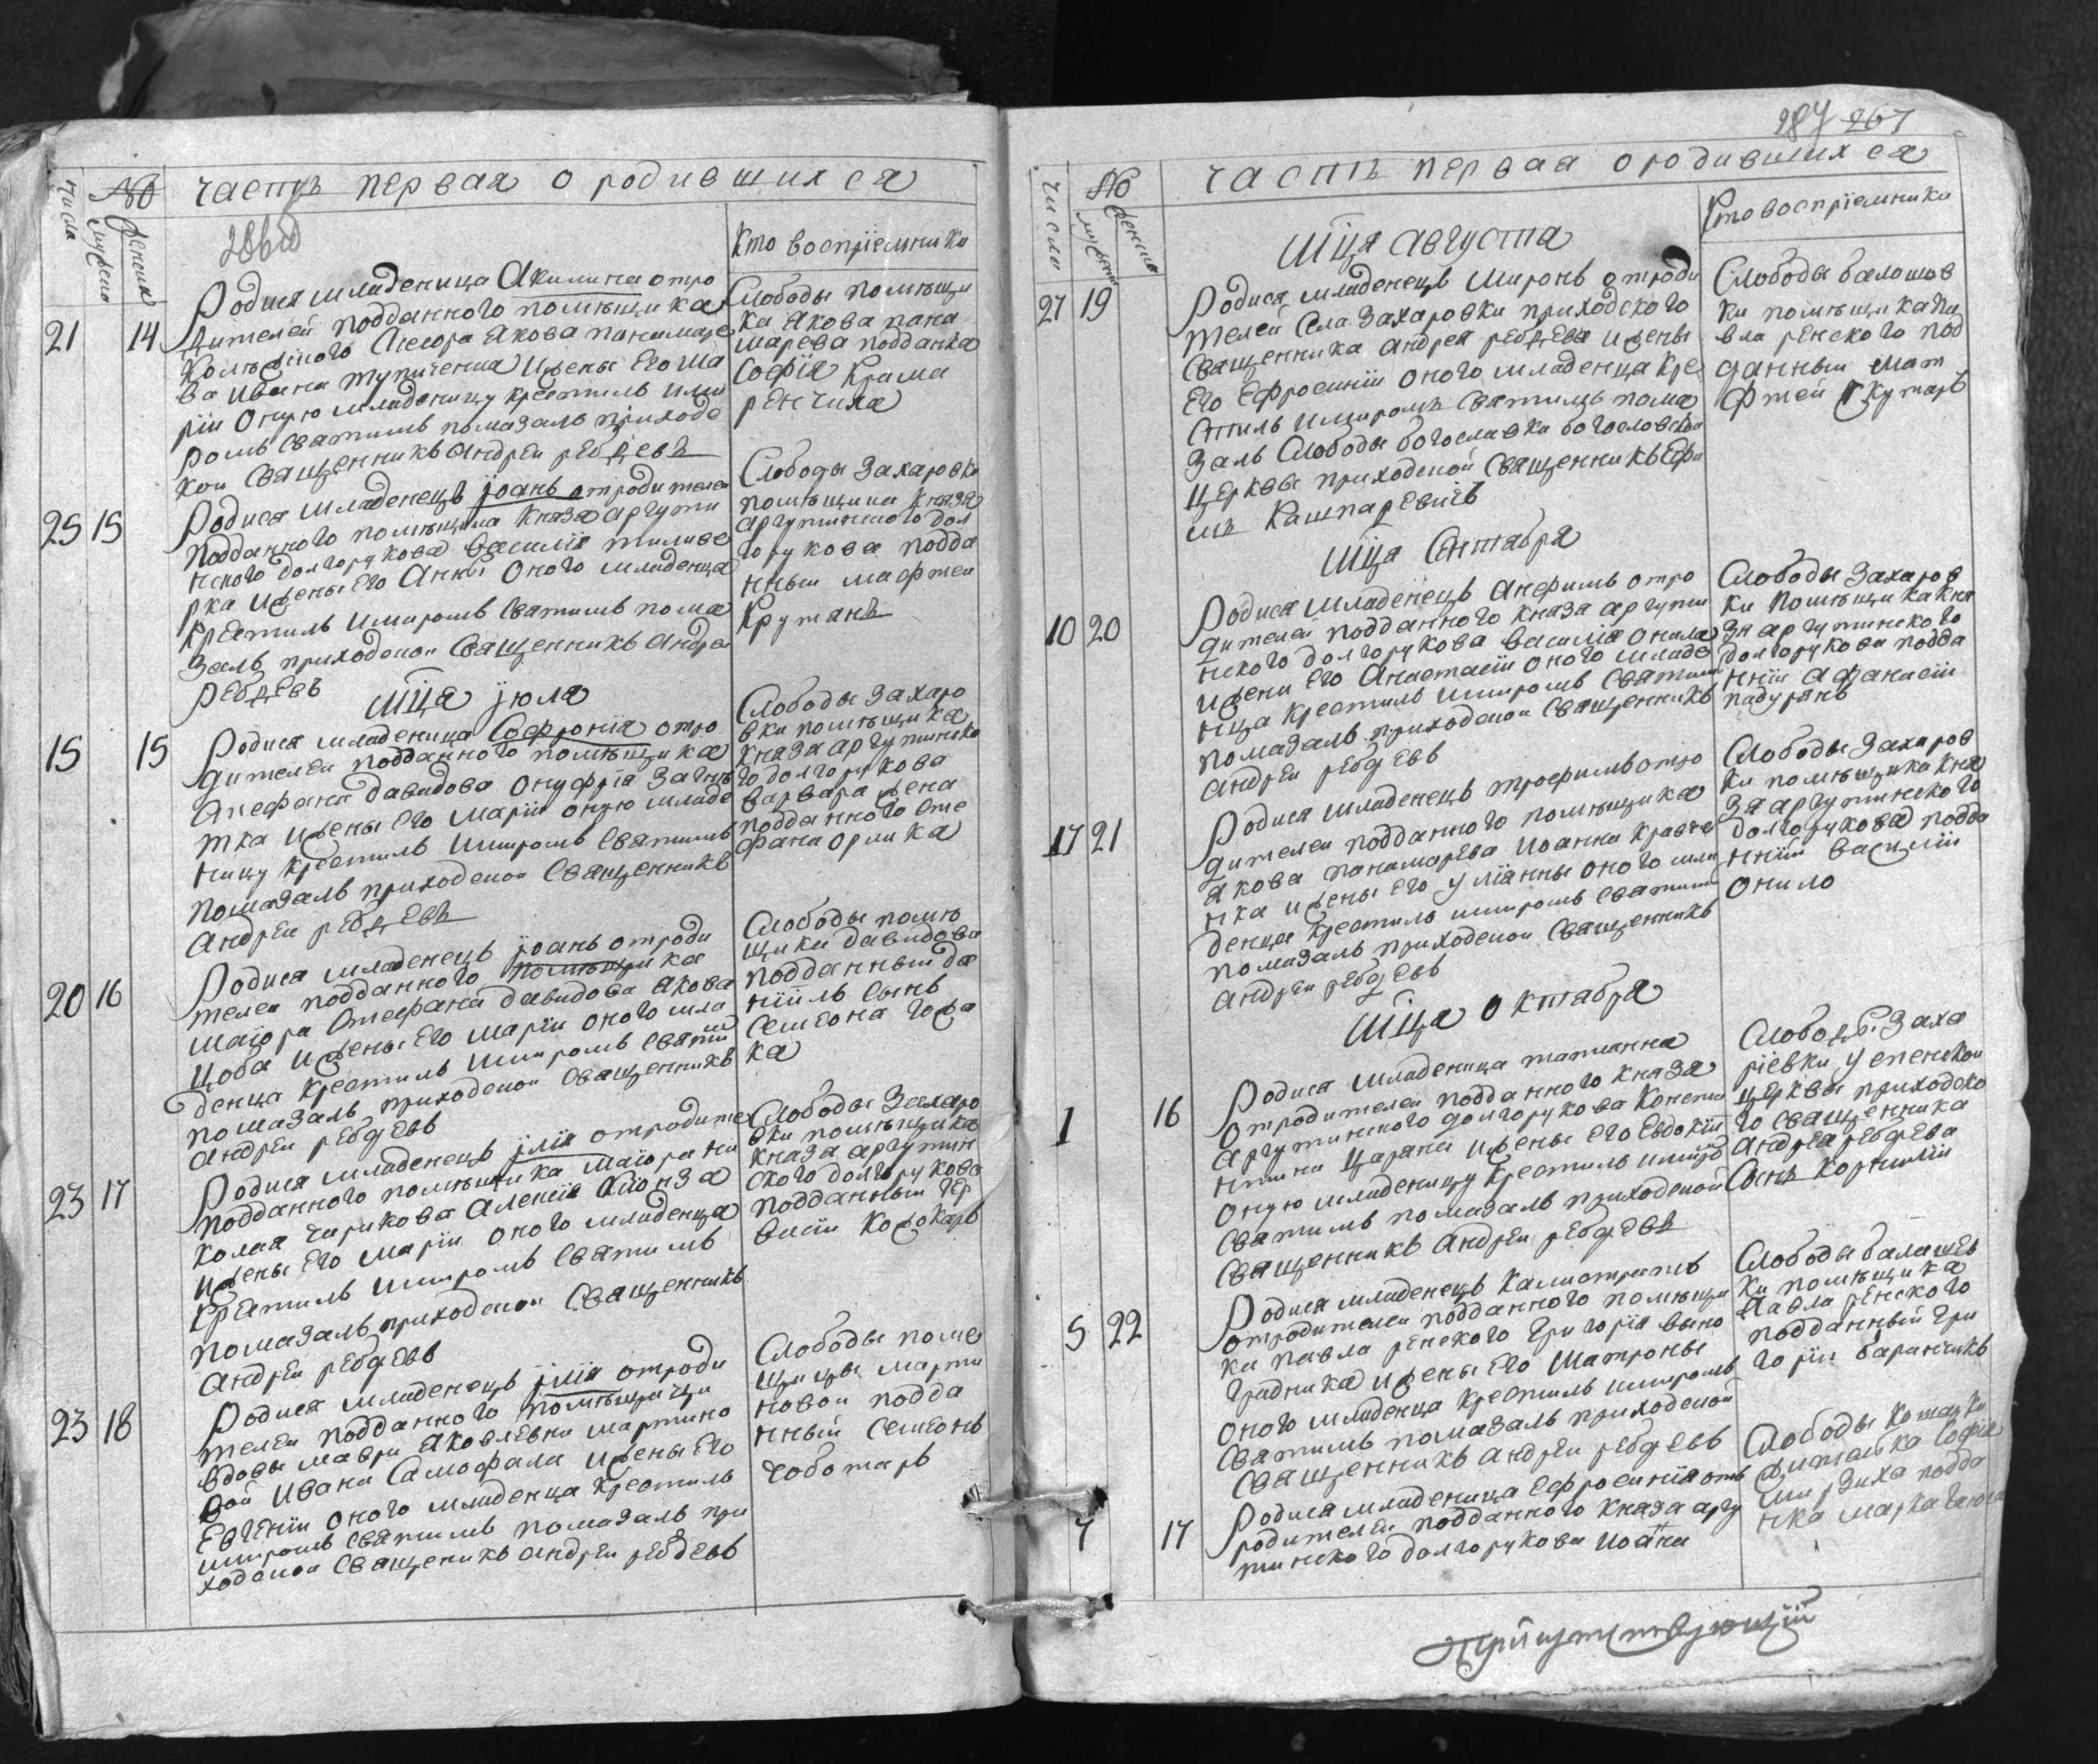 часть первая о родившихся
числа
№
мужеска
женска
286об
Кто воспріемники
21 14
Родися младеница Акилина отро
дителей подданного помѣщика
Колѣжского Асесора Якова панамаре
ва Ивана тупиченка и жены Его Ма
ріи оную младеницу крестилъ и ми
ромъ Святимъ помазалъ приходс
кой Священникъ Андрей
Слободы помѣщи
ка Якова пана
марева подданка
Софія Крама
ренчиха
25 15
Родися младенецъ Іоанъ отродителей
подданного помѣщика Князя аргути
нского долгорукова Василія
рка и жены Его Анны оного младенца
крестилъ и миромъ Святимъ пома
залъ приходской Священникъ Андрей
Слободы Захаровки
помѣщика Князя
аргутинского дол
горукова подда
нный мафтей
Крутанъ
Мца Іюля
15 15
Родися младеница Софронія отро
дителей подданного помѣщика
Стефана давидова Онуфрія Загнѣ
тка и жены Его Маріи оную младе
ницу крестилъ и миромъ Святимъ
помазалъ приходской Священникъ
Андрей
Слободы Захаро
вки помѣщика
Князя аргутинско
го долгорукова
варвара жена
подданного Сте
фана орлика
20 16
Родися младенецъ Іоанъ отроди
телей подданного помѣщика
маіора Стефана давидова Якова
Цоба и жены Его Маріи оного мла
денца крестилъ и миромъ Святим
помазалъ приходской Священникъ
Андрей
Слободы помѣ
щика давидова
подданный да
ніилъ Сынъ
Семеона
ка
23 17
Родися младенецъ Ілія отродителей
подданного помѣщика маіора ни
колая чирикова Алексія
и жены Его Маріи оного младенца
крестилъ и миромъ Святимъ
помазалъ приходской Священникъ
Андрей
Слободы Захаро
вки помѣщика
Князя аргутин
ского долгорукова
подданный гер
васій Кожокарь
23 18
Родися младенецъ Ілія отроди
телей подданного помѣщици
вдовы мавры Яковлевны мартино
вой Ивана Самофала и жены Его
Евгеніи оного младенца крестилъ
и миромъ Святимъ помазалъ при
ходской Священикъ Андрей
Слободы поме
щицы марти
новой подда
нный Семеонъ
чоботарь
287 267
часть первая о родившихся
числа
№
мужеска
женска
Кто воспріемники
Мца Августа
27 19
Родися младенецъ Миронъ отроди
телей Села Захаровки приходского
Священника Андрея и жены
Его Ефросиніи оного младенца кре
стилъ и миромъ Святимъ пома
залъ Слободы богославки богословской
Церквы приходской Священникъ Ефи
мъ Кашпаревичъ
Слободы балашов
ки помѣщика па
вла ренского под
данный Мат
фтей Скутарь
Мца Сентабря
10 20
Родися младенецъ Анфимъ отро
дителей подданного Князя аргути
нского долгорукова Василія онила
и жены Его Анастасіи оного младе
нца крестилъ и миромъ Святим
помазалъ приходской Священникъ
Андрей
Слободы Захаров
ки помѣщика Кня
зя аргутинского
долгорукова подда
нній Афанасій
падурянъ
17 21
Родися младенецъ трофимъ отро
дителей подданного помѣщика
Якова панамарева Иоанна кравче
нка и жены Его Уліянны оного мла
денца крестилъ и миромъ Святим
помазалъ приходской Священникъ
Андрей
Слободы Захаров
ки помѣщика Кня
зя аргутинского
долгорукова подда
нній Василій
онило
Мца Октабря
1 16
Родися младеница татианна
отродителей подданного Князя
Аргутинского долгорукова Конста
нтина Царана и жены Его Евдокіи
оную младеницу крестилъ и миро
Святимъ помазалъ приходской
Священникъ Андрей
Слободы Заха
ріевки Успенской
Церквы приходско
го Священника
Андрея
Сынъ Корнилій
5 22
Родися младенецъ Калистратъ
отродителей подданного помѣщи
ка павла ренского Григорія вино
градника и жены Его Матроны
оного младенца крестилъ и миромъ
Святимъ помазалъ приходской
Священникъ Андрей
Слободы балашев
ки помѣщика
Павла ренского
подданный гри
горій баранчикъ
7 17
Родися младеница Ефросинія отъ
родителей подданного Князя аргу
тинского долгорукова Иоана
Слободы
Софія
подда
нка марка